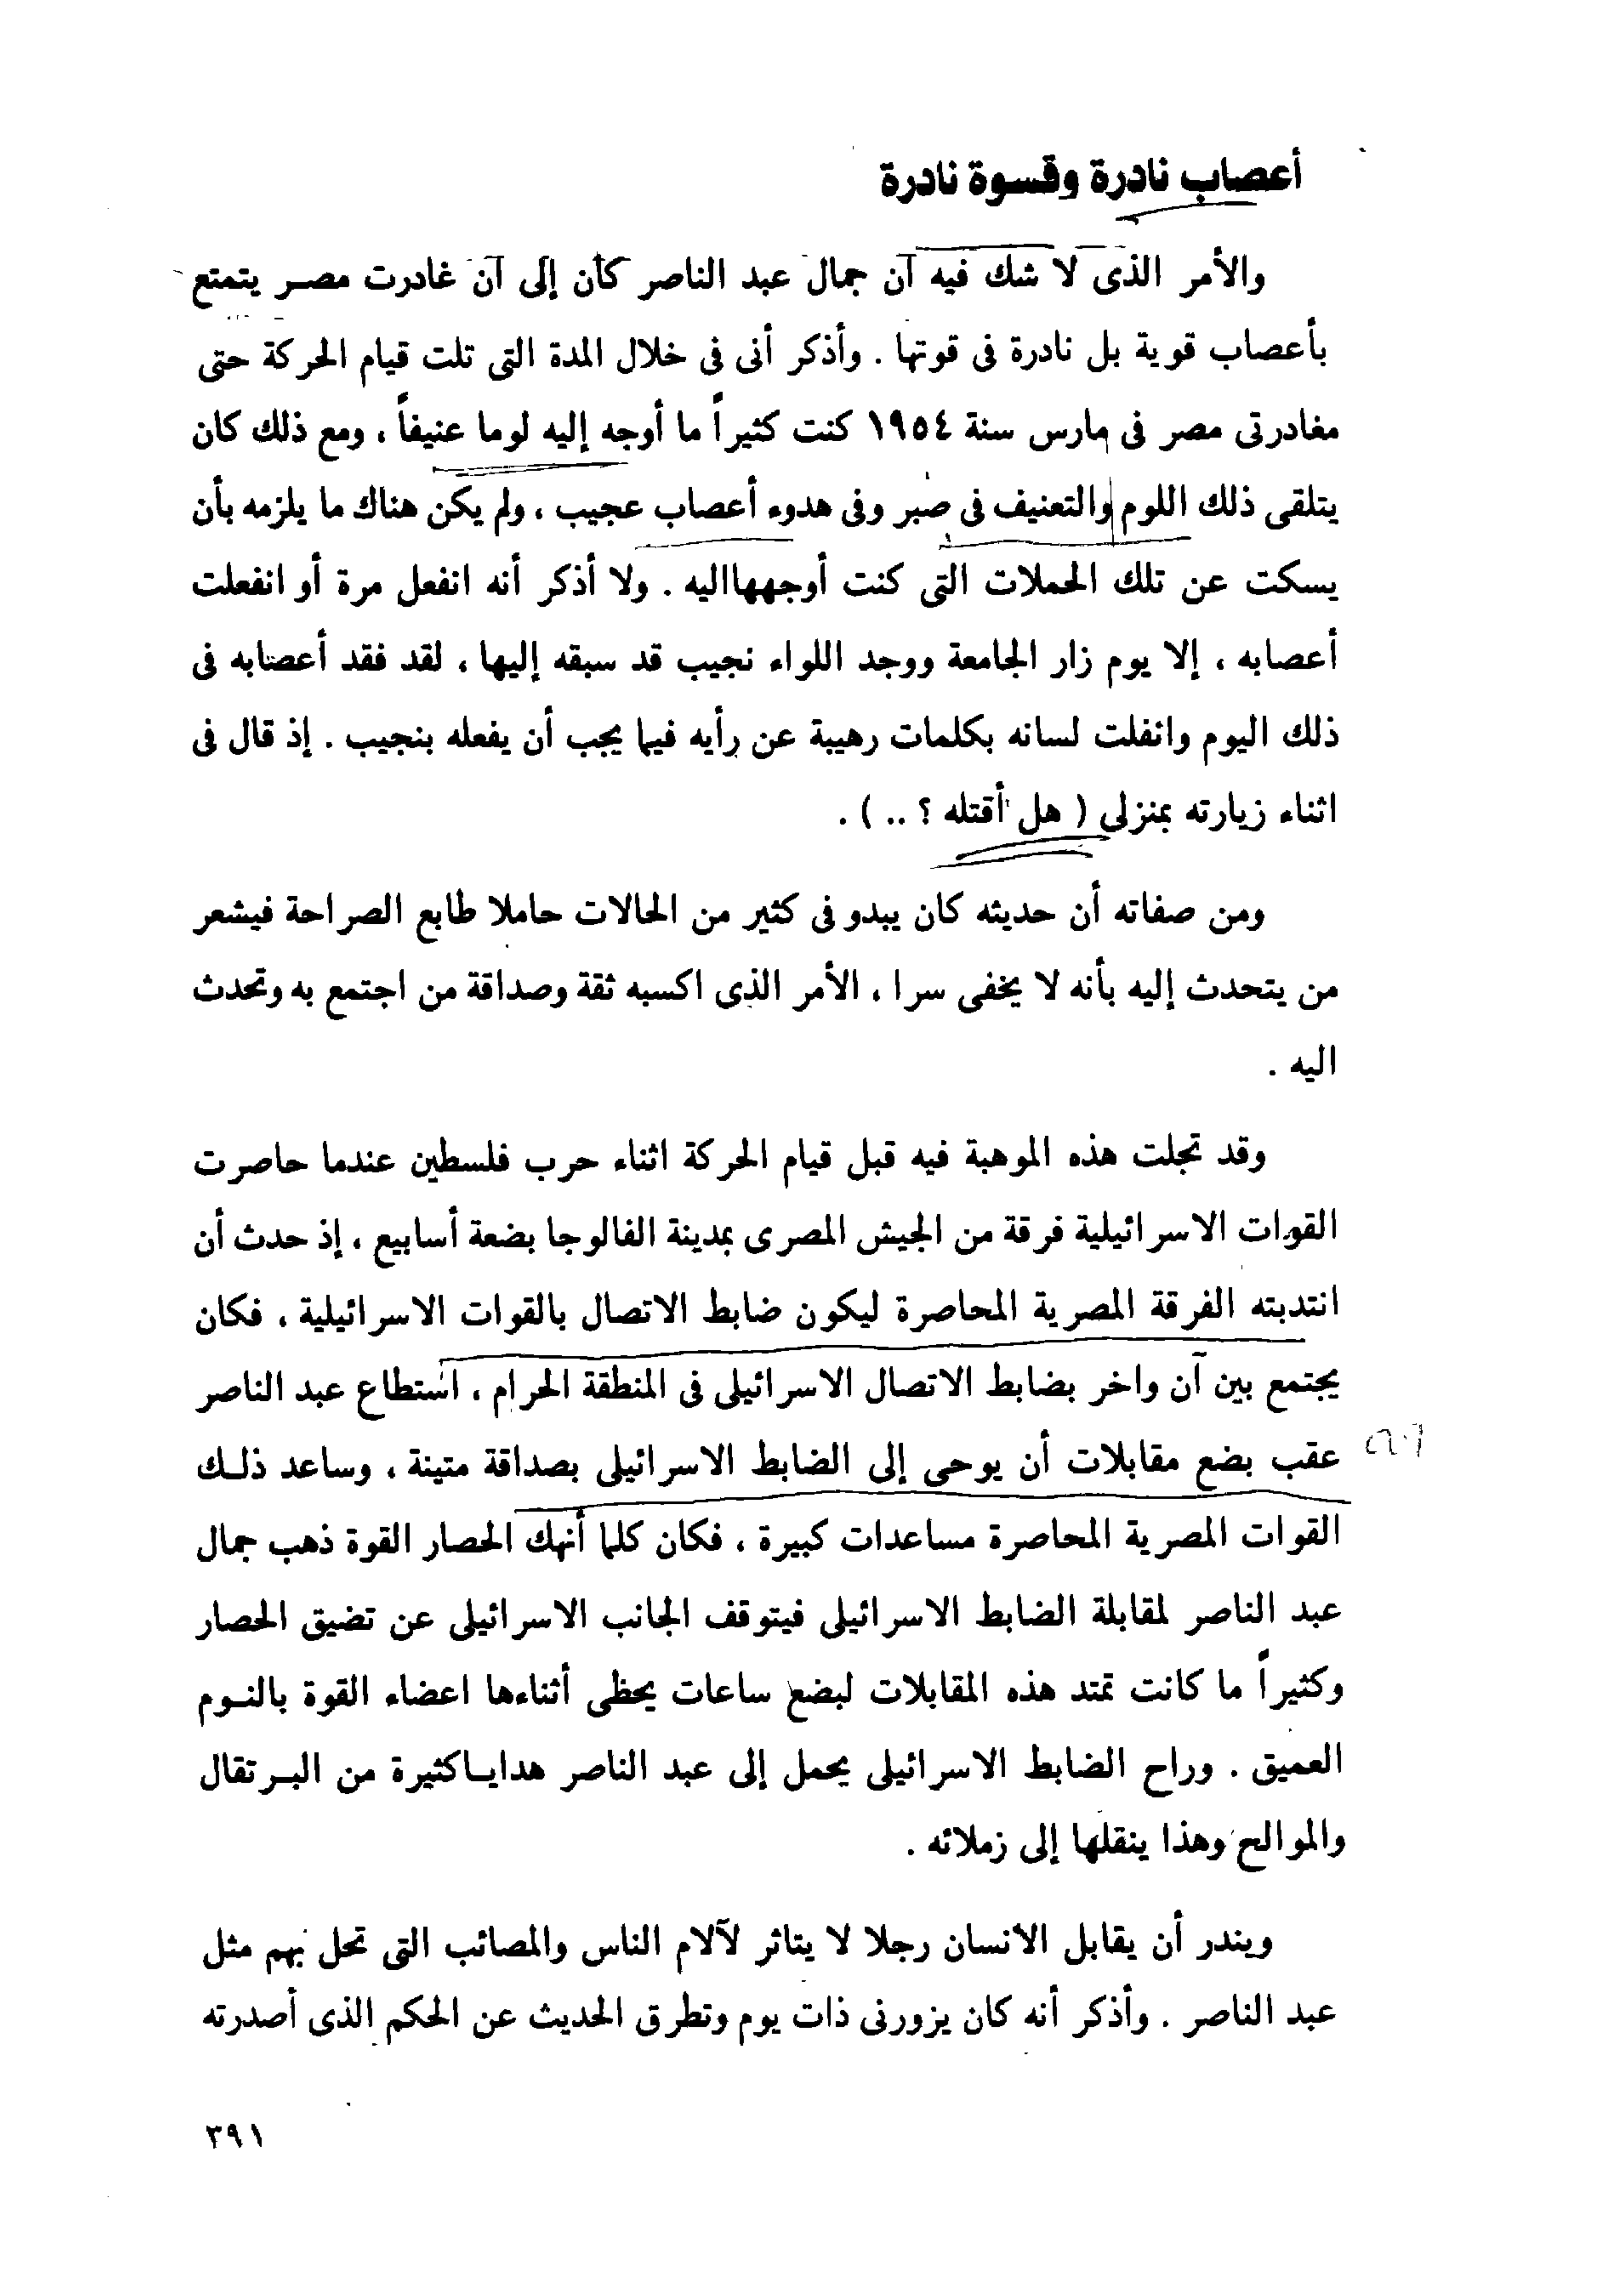 أعصاب نادرة وقسوة نادرة
والأمر الذى لا شك فيه أن جمال عبد الناصر كان إلى أن غادرت مصر يتمتع
بأعصاب قوية بل نادرة فى قوتها . وأذكر أنى فى خلال المدة التى تلت قيام الحركة حتى
مغادرتى مصر فى مارس سنة ١٩٥٤ كنت كثيراً ما أوجه إليه لوما عنيفاً ، ومع ذلك كان
يتلقى ذلك اللوم والتعنيف فى صبر وفى هدوء أعصاب عجيب ، ولم يكن هناك ما يلزمه بأن
يسكت عن تلك الحملات التى كنت أوجهها اليه . ولا أذكر أنه انفعل مرة أو انفعلت
أعصابه ، إلا يوم زار الجامعة ووجد اللواء نجيب قد سبقه إليها ، لقد فقد أعصابه فى
ذلك اليوم وانفلت لسانه بكلمات رهيبة عن رأيه فيما يجب أن يفعله بنجيب . إذ قال فى
اثناء زيارته بمنزلى ( هل أقتله ؟ .. ) .
ومن صفاته أن حديثه كان يبدو فى كثير من الحالات حاملا طابع الصراحة فيشعر
من يتحدث إليه بأنه لا يخفى سرا ، الأمر الذى اكسبه ثقة وصداقة من اجتمع به وتحدث
اليه .
وقد تجلت هذه الموهبة فيه قبل قيام الحركة اثناء حرب فلسطين عندما حاصرت
القوات الاسرائيلية فرقة من الجيش المصرى بمدينة الفالوجا بضعة أسابيع ، إذ حدث أن
انتدبته الفرقة المصرية المحاصرة ليكون ضابط الاتصال بالقوات الاسرائيلية ، فكان
يجتمع بين آن واخر بضابط الاتصال الاسرائيلى فى المنطقة الحرام ، استطاع عبد الناصر
عقب بضع مقابلات أن يوحى إلى الضابط الاسرائيلى بصداقة متينة ، وساعد ذلك
القوات المصرية المحاصرة مساعدات كبيرة ، فكان كلما أنهك الحصار القوة ذهب جمال
عبد الناصر لمقابلة الضابط الاسرائيلى فيتوقف الجانب الاسرائيلى عن تضيق الحصار
وكثيراً ما كانت تمتد هذه المقابلات لبضع ساعات يحظى أثناءها اعضاء القوة بالنوم
العميق . وراح الضابط الاسرائيلى يحمل إلى عبد الناصر هدايا كثيرة من البرتقال
والموالح وهذا ينقلها إلى زملائه .
ويندر أن يقابل الانسان رجلا لا يتاثر لآلام الناس والمصائب التى تحل بهم مثل
عبد الناصر . وأذكر أنه كان يزورنى ذات يوم وتطرق الحديث عن الحكم الذى أصدرته
٣٩١